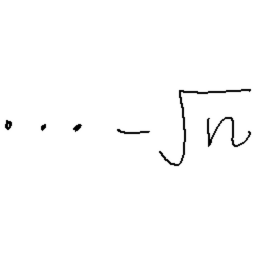 ... - √n